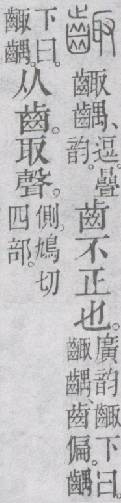 齱 齱齵、逗。曡韵。齒不正也。廣韵齱下曰。齱齵齒偏。齵
下曰。齱齵。从齒。取聲。側鳩切。四部。